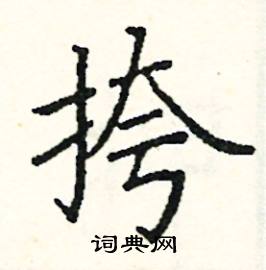 挎
词典网